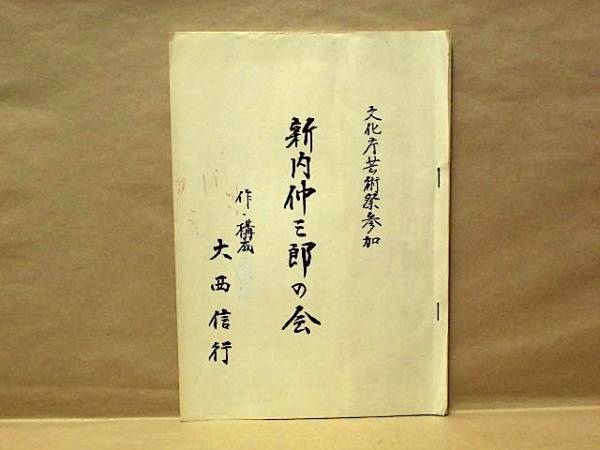 文化庁芸術祭参加
新内仲三郎の会
作・構成
大西信行